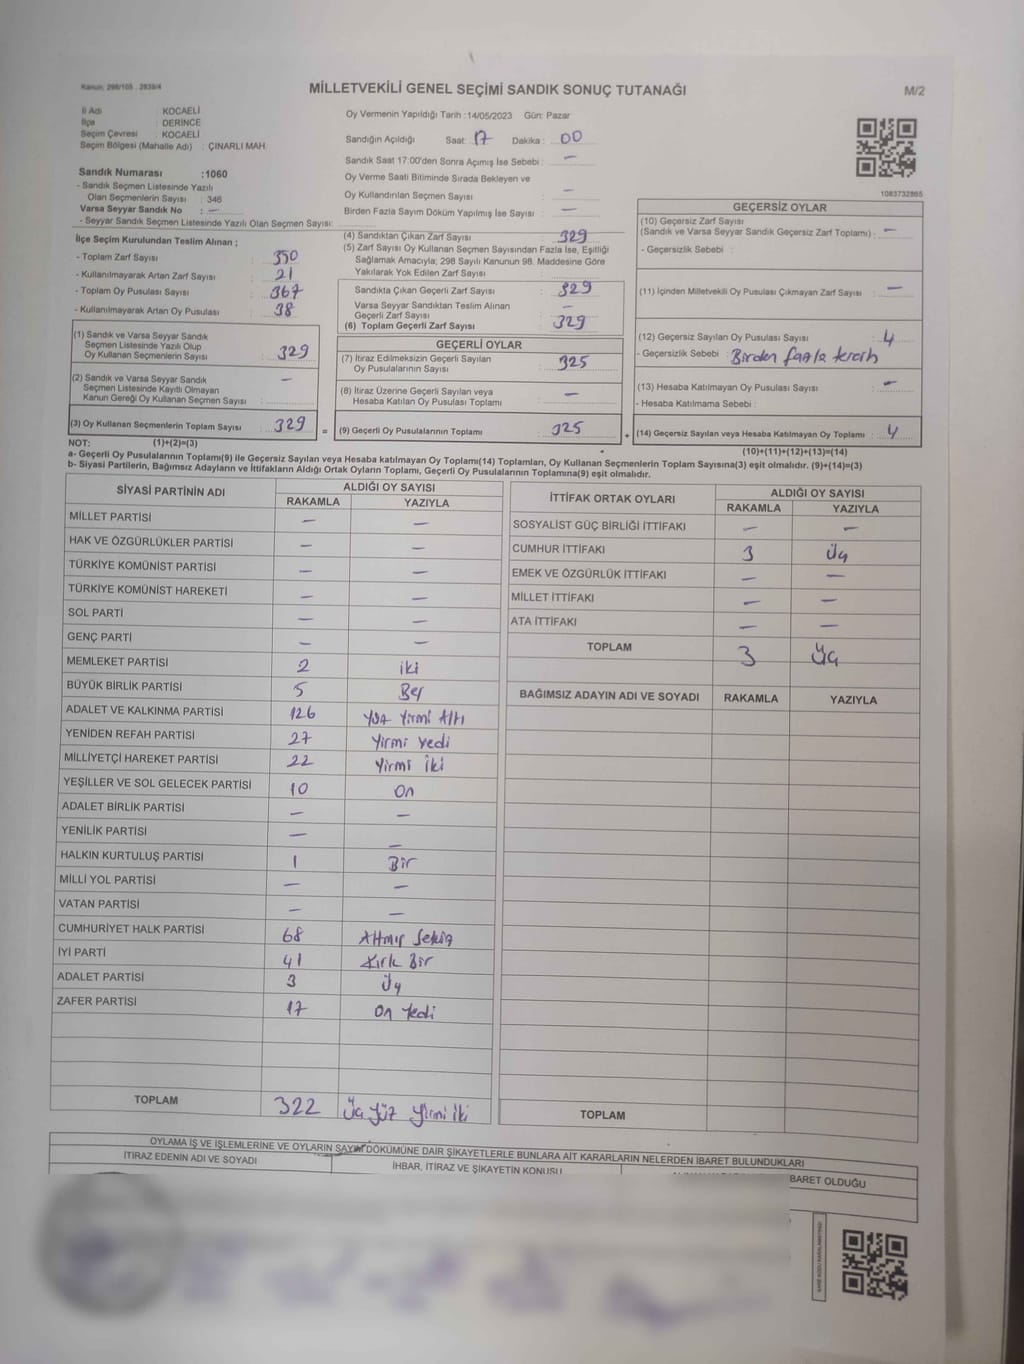 Kanun: 298/105 , 2839/4
MİLLETVEKİLİ GENEL SEÇİMİ SANDIK SONUÇ TUTANAĞI
M/2
İl Adı : KOCAELİ
İlçe : DERİNCE
Seçim Çevresi : KOCAELİ
Seçim Bölgesi (Mahalle Adı) : ÇINARLI MAH.
Sandık Numarası :1060
- Sandık Seçmen Listesinde Yazılı
Olan Seçmenlerin Sayısı : 346
Varsa Seyyar Sandık No : —
- Seyyar Sandık Seçmen Listesinde Yazılı Olan Seçmen Sayısı:
Oy Vermenin Yapıldığı Tarih :14/05/2023 Gün: Pazar
Sandığın Açıldığı Saat: 17 Dakika : 00
Sandık Saat 17:00'den Sonra Açımış İse Sebebi : —
Oy Verme Saati Bitiminde Sırada Bekleyen ve
Oy Kullandırılan Seçmen Sayısı : —
Birden Fazla Sayım Döküm Yapılmış İse Sayısı : —
1083732865
İlçe Seçim Kurulundan Teslim Alınan ;
- Toplam Zarf Sayısı : 350
- Kullanılmayarak Artan Zarf Sayısı : 21
- Toplam Oy Pusulası Sayısı : 367
- Kullanılmayarak Artan Oy Pusulası : 38
(1) Sandık ve Varsa Seyyar Sandık
Seçmen Listesinde Yazılı Olup
Oy Kullanan Seçmenlerin Sayısı : 329
(2) Sandık ve Varsa Seyyar Sandık —
Seçmen Listesinde Kayıtlı Olmayan
Kanun Gereği Oy Kullanan Seçmen Sayısı :
(3) Oy Kullanan Seçmenlerin Toplam Sayısı : 329
(4) Sandıktan Çıkan Zarf Sayısı : 329
(5) Zarf Sayısı Oy Kullanan Seçmen Sayısından Fazla İse, Eşitliği
Sağlamak Amacıyla; 298 Sayılı Kanunun 98. Maddesine Göre
Yakılarak Yok Edilen Zarf Sayısı : —
Sandıkta Çıkan Geçerli Zarf Sayısı : 329
Varsa Seyyar Sandıktan Teslim Alınan
Geçerli Zarf Sayısı : —
(6) Toplam Geçerli Zarf Sayısı : 329
GEÇERLİ OYLAR
(7) İtiraz Edilmeksizin Geçerli Sayılan
Oy Pusulalarının Sayısı : 325
(8) İtiraz Üzerine Geçerli Sayılan veya
Hesaba Katılan Oy Pusulası Toplamı : —
= (9) Geçerli Oy Pusulalarının Toplamı : 325
GEÇERSİZ OYLAR
(10) Geçersiz Zarf Sayısı
(Sandık ve Varsa Seyyar Sandık Geçersiz Zarf Toplamı) : —
- Geçersizlik Sebebi : —
(11) İçinden Milletvekili Oy Pusulası Çıkmayan Zarf Sayısı : —
(12) Geçersiz Sayılan Oy Pusulası Sayısı : 4
- Geçersizlik Sebebi : Birden fazla tercih
(13) Hesaba Katılmayan Oy Pusulası Sayısı : —
- Hesaba Katılmama Sebebi :
+ (14) Geçersiz Sayılan veya Hesaba Katılmayan Oy Toplamı : 4
NOT: (1)+(2)=(3)
(10)+(11)+(12)+(13)=(14)
a- Geçerli Oy Pusulalarının Toplamı(9) ile Geçersiz Sayılan veya Hesaba Katılmayan Oy Pusulası Toplamı(14) Toplamları, Oy Kullanan Seçmenlerin Toplam Sayısına(3) eşit olmalıdır. (9)+(14)=(3)
b- Siyasi Partilerin, Bağımsız Adayların ve İttifakların Aldığı Ortak Oyların Toplamı, Geçerli Oy Pusulalarının Toplamına(9) eşit olmalıdır.
SİYASİ PARTİNİN ADI ALDIĞI OY SAYISI
RAKAMLA YAZIYLA
MİLLET PARTİSİ — —
HAK VE ÖZGÜRLÜKLER PARTİSİ — —
TÜRKİYE KOMÜNİST PARTİSİ — —
TÜRKİYE KOMÜNİST HAREKETİ — —
SOL PARTİ — —
GENÇ PARTİ — —
MEMLEKET PARTİSİ 2 iki
BÜYÜK BİRLİK PARTİSİ 5 Beş
ADALET VE KALKINMA PARTİSİ 126 Yüz Yirmi Altı
YENİDEN REFAH PARTİSİ 27 Yirmi Yedi
MİLLİYETÇİ HAREKET PARTİSİ 22 Yirmi İki
YEŞİLLER VE SOL GELECEK PARTİSİ 10 On
ADALET BİRLİK PARTİSİ — —
YENİLİK PARTİSİ — —
HALKIN KURTULUŞ PARTİSİ 1 Bir
MİLLİ YOL PARTİSİ — —
VATAN PARTİSİ — —
CUMHURİYET HALK PARTİSİ 68 Altmış Sekiz
İYİ PARTİ 41 Kırk Bir
ADALET PARTİSİ 3 Üç
ZAFER PARTİSİ 17 On Yedi
TOPLAM 322 Üç Yüz Yirmi İki
İTTİFAK ORTAK OYLARI ALDIĞI OY SAYISI
RAKAMLA YAZIYLA
SOSYALİST GÜÇ BİRLİĞİ İTTİFAKI — —
CUMHUR İTTİFAKI 3 Üç
EMEK VE ÖZGÜRLÜK İTTİFAKI — —
MİLLET İTTİFAKI — —
ATA İTTİFAKI — —
TOPLAM 3 Üç
BAĞIMSIZ ADAYIN ADI VE SOYADI RAKAMLA YAZIYLA
TOPLAM
OYLAMA İŞ VE İŞLEMLERİNE VE OYLARIN SAYIM DÖKÜMÜNE DAİR ŞİKAYETLERLE BUNLARA AİT KARARLARIN NELERDEN İBARET BULUNDUKLARI
İTİRAZ EDENİN ADI VE SOYADI
İHBAR, İTİRAZ VE ŞİKAYETİN KONUSU
BARET OLDUĞU